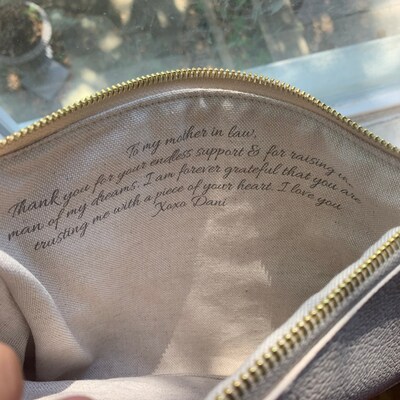 To my mother in law,
Thank you for your endless support & for raising
man of my dreams. I am forever grateful that you are
trusting me with a piece of your heart. I love you
Xoxo Dani